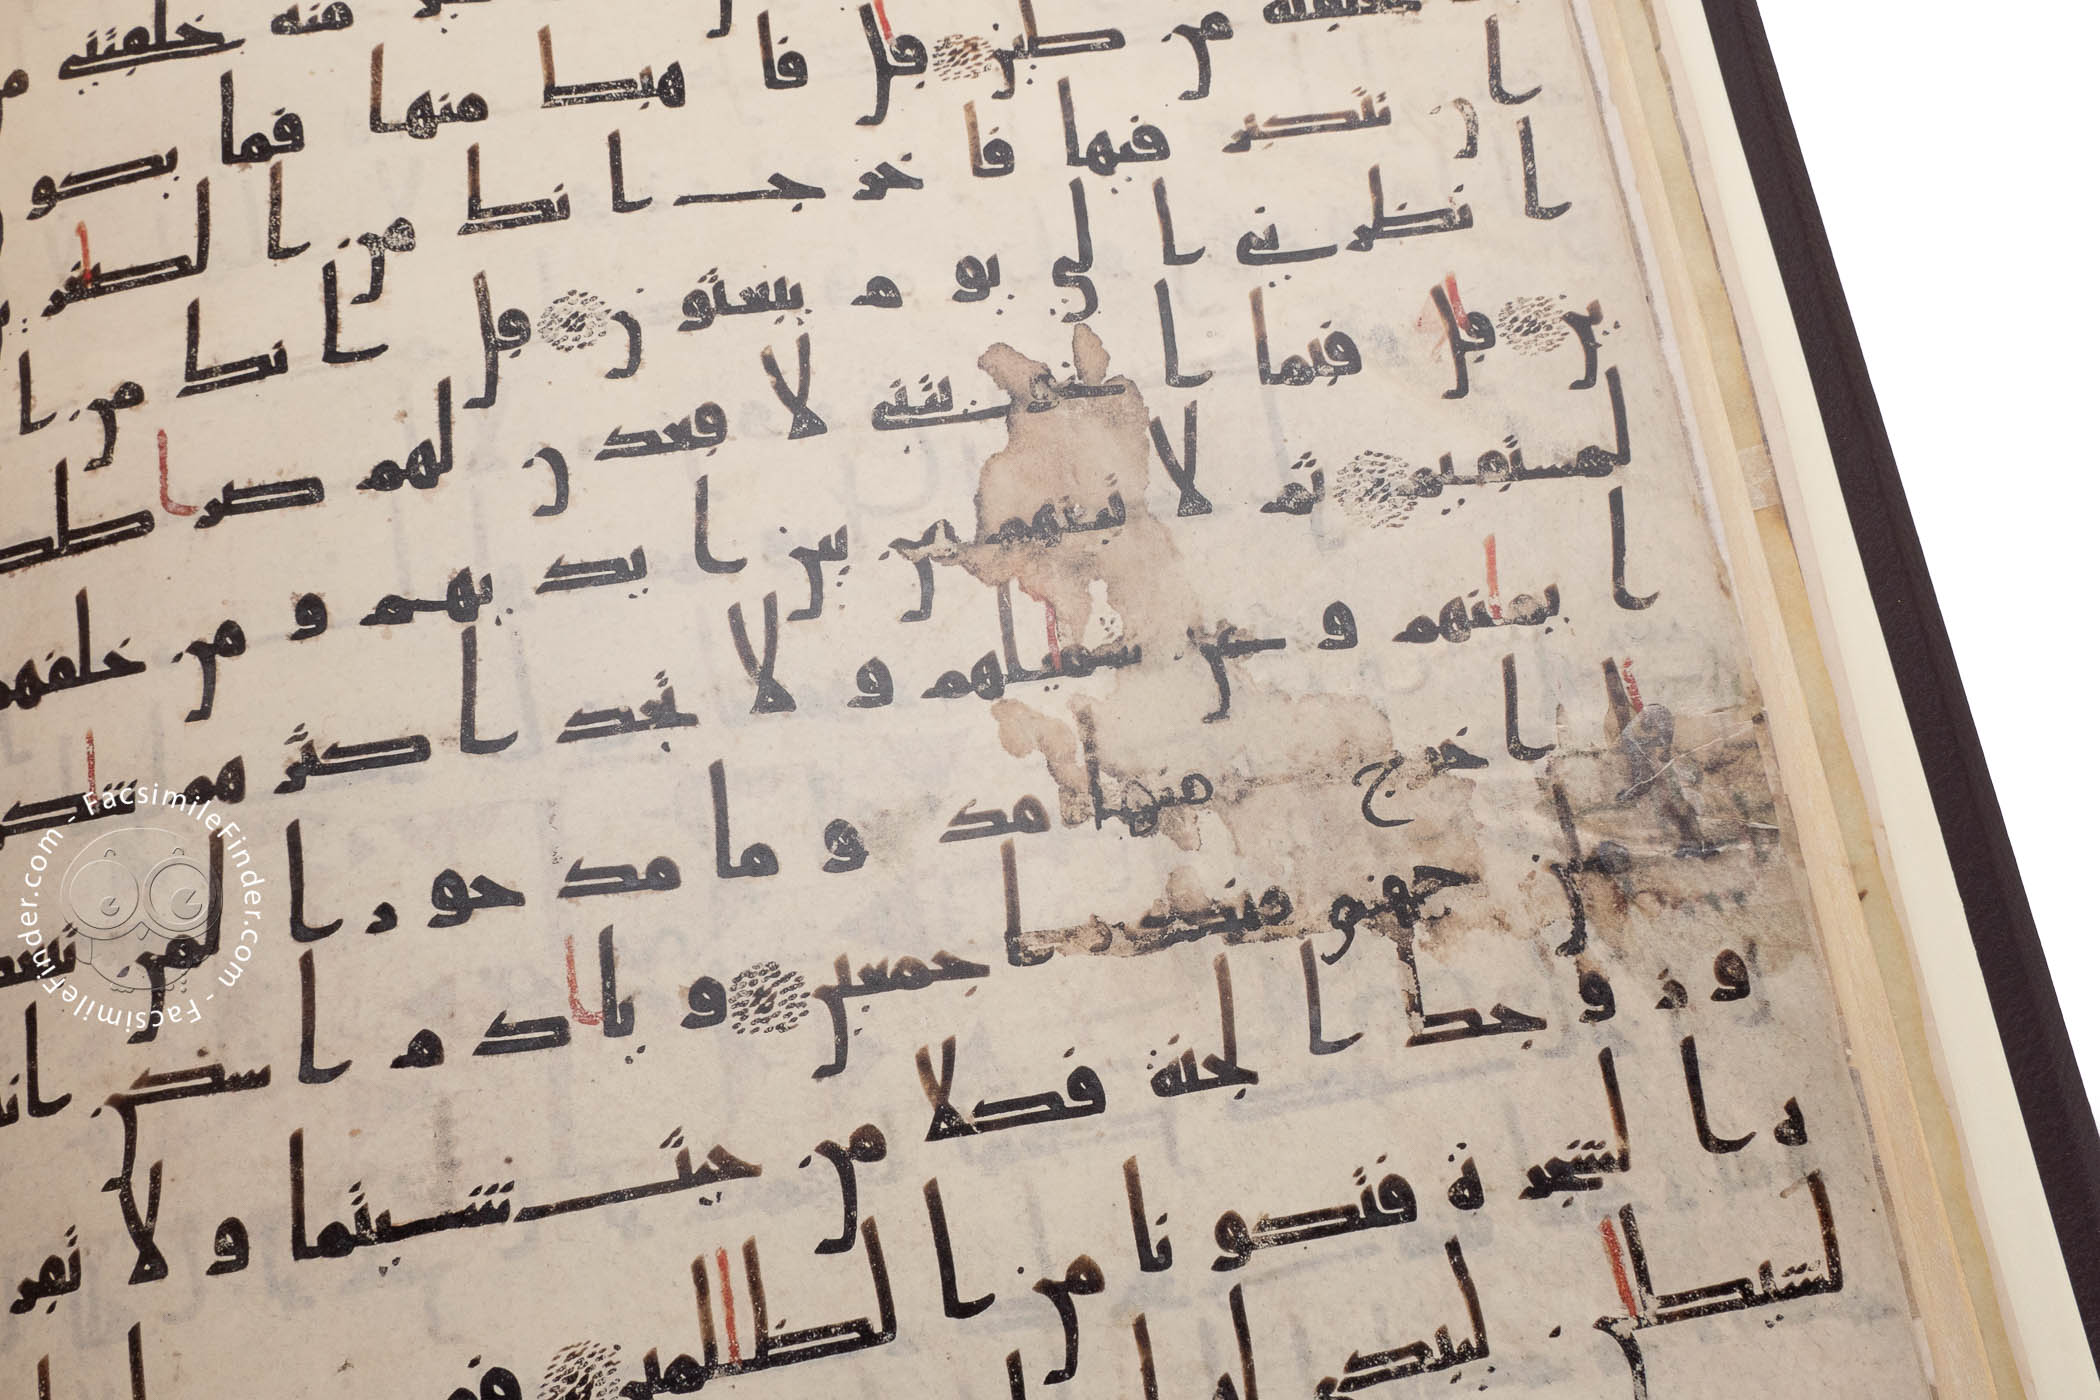 منه خلقتني
من طين قال فا هبط منها فما يكو
ا ن تتكبر فيها فا خر ج ا نك من ا لصغر
ا نظرني ا لى يو م يبعثو ن قل ا نك من ا
ين قال فبما ا غويتني لا قعد ن لهم صرا طك
لمستقيم ثم لا تينهم من بين ا يد يهم و من خلفهم
ا يمانهم و عن شمايلهم و لا تجد ا كثر هم
قال ا خرج منها مذ و ما مد حو ر ا لمن تبع
من جهنم منكم ا جمعين و يا اد م ا سكن ا نت
و ز و جك ا لجنة فكلا من حيث شيتما و لا تقر
ه ا لشجر ة فتكو نا من ا لظالمين فو
لشيطان ليبد
FacsimileFinder.com - FacsimileFinder.com -